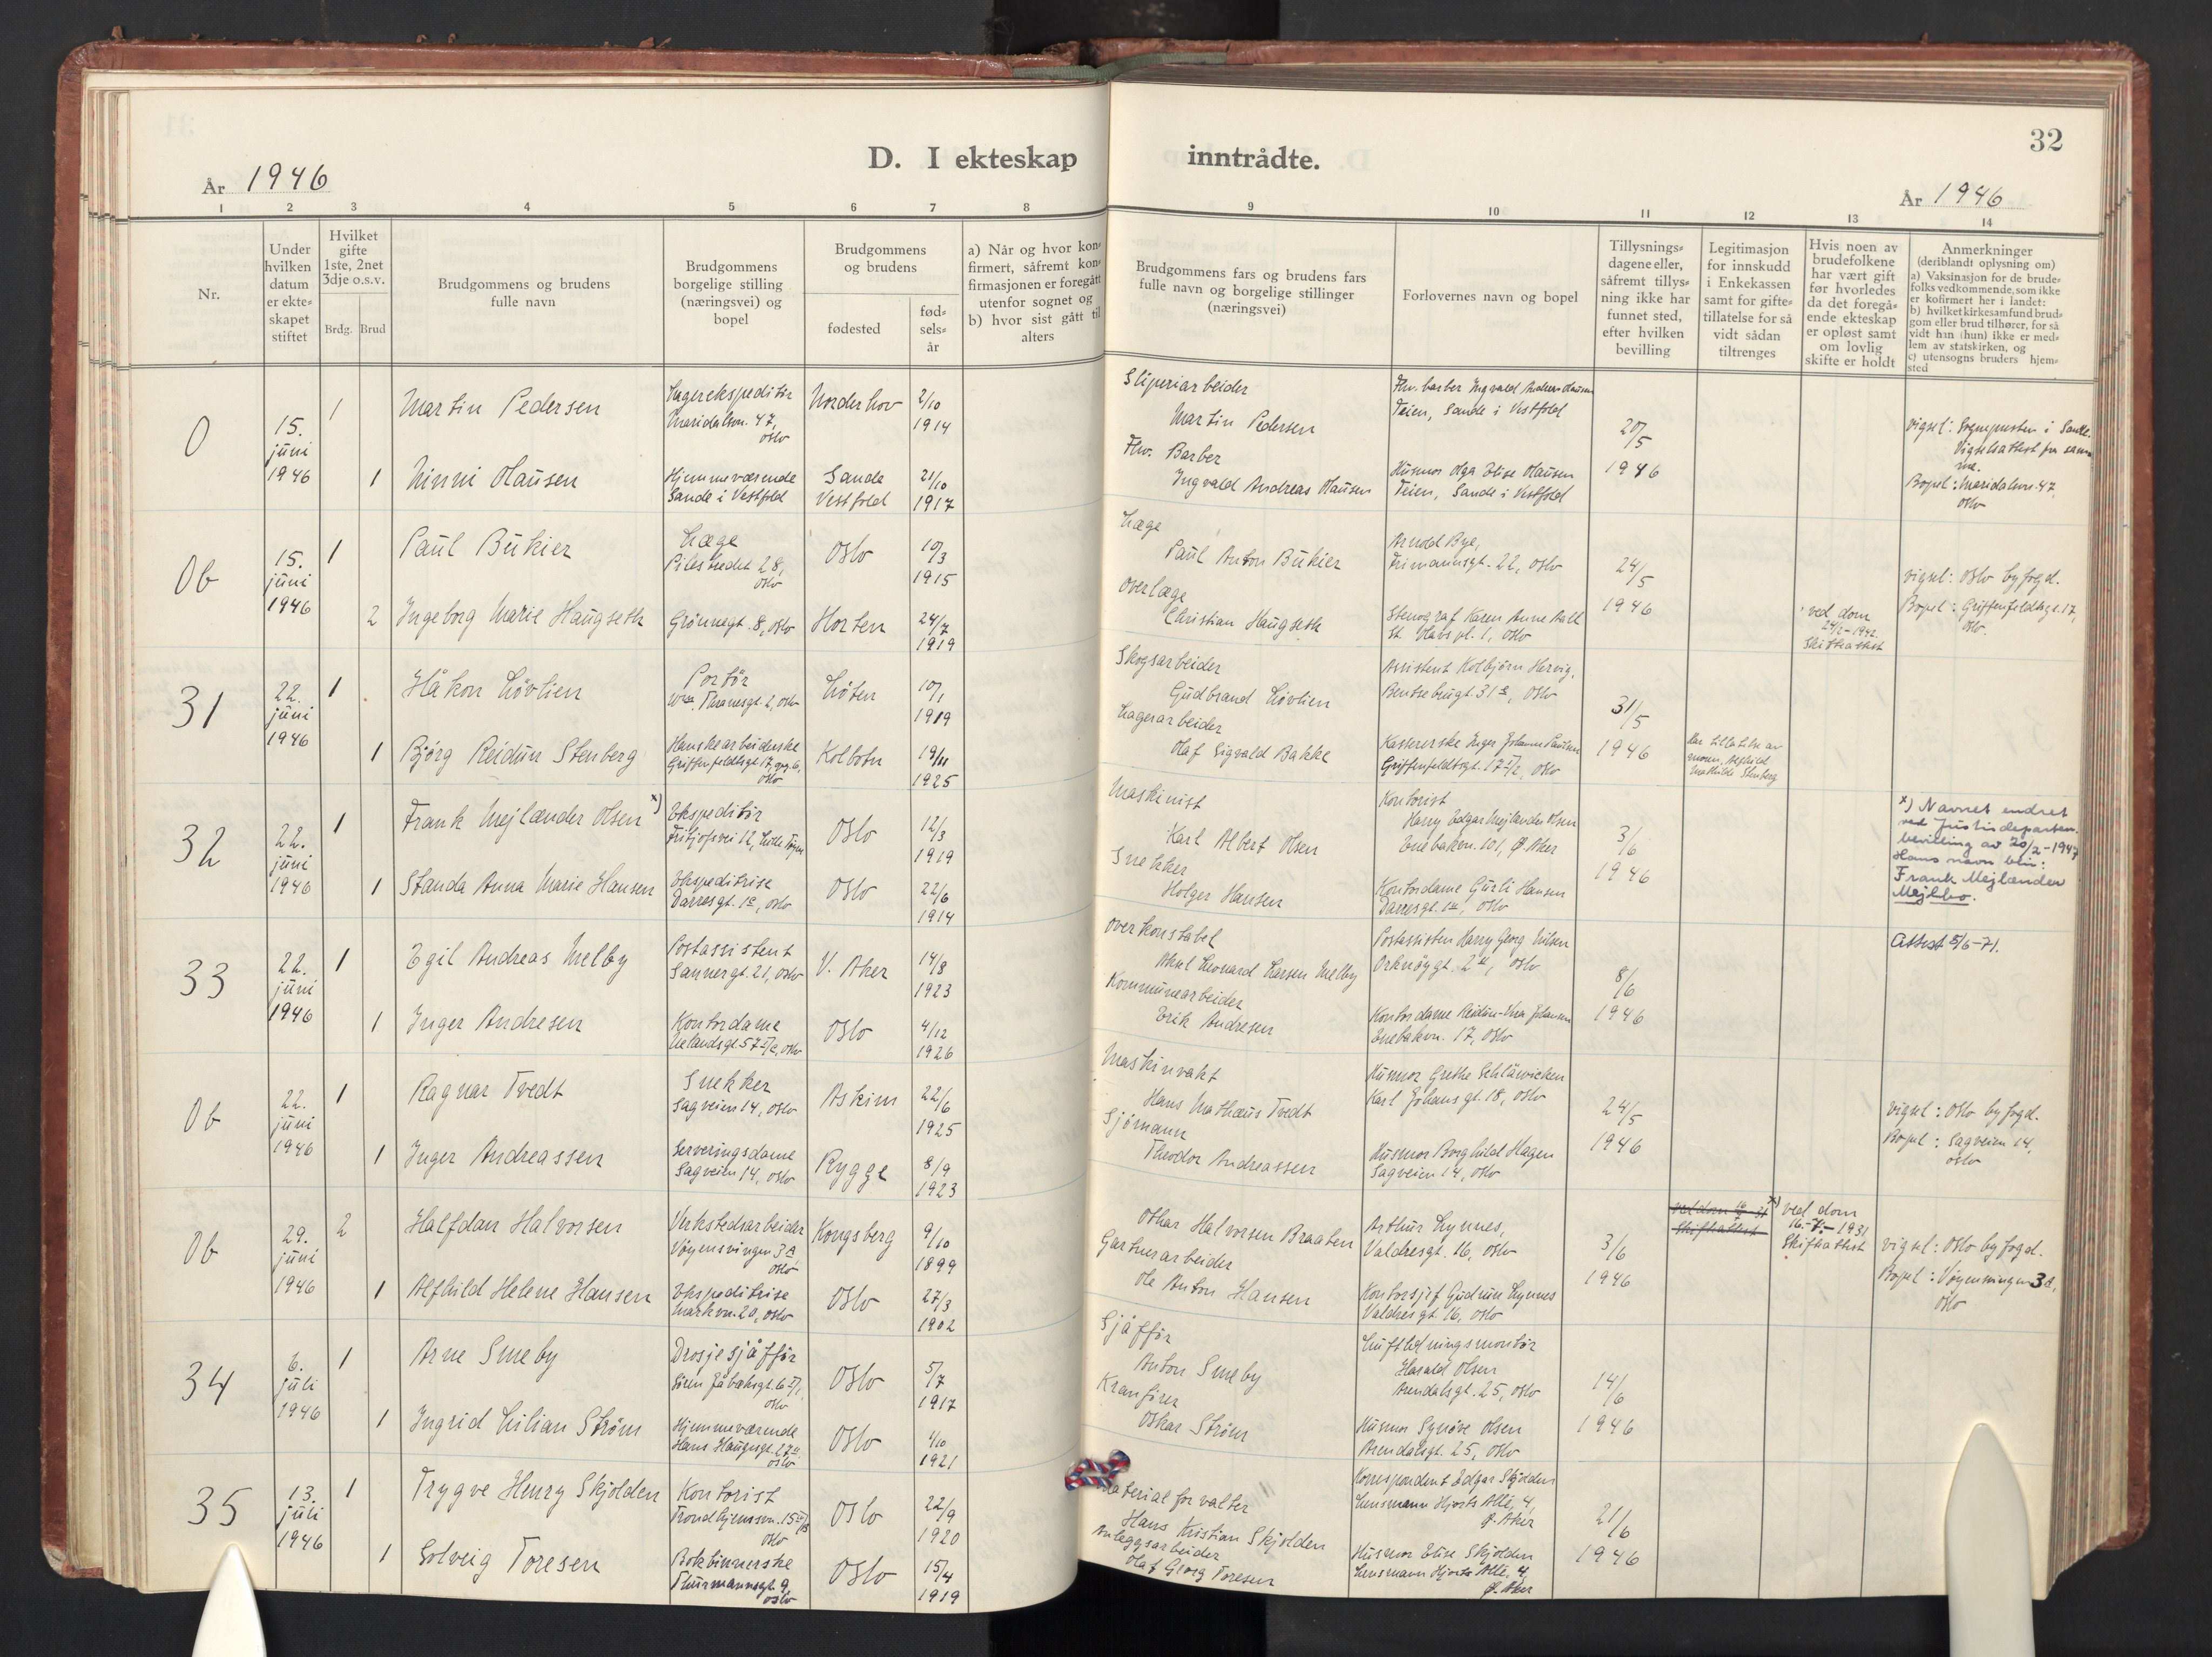 D. I ekteskap inntrådte.
32
År 1946
År 1946
1 2 3 4 5 6 7 8 9 10 11 12 13 14
Nr.
Under
hvilken
datum
er ekte=
skapet
stiftet
Hvilket
gifte
1ste, 2net
3dje o.s.v.
Brdg. Brud
Brudgommens og brudens
fulle navn
Brudgommens
borgelige stilling
(næringsvei) og
bopel
Brudgommens
og brudens
fødested
fød=
sels=
år
a) Når og hvor kon=
firmert, såfremt kon=
firmasjonen er foregått
utenfor sognet og
b) hvor sist gått til
alters
Brudgommens fars og brudens fars
fulle navn og borgelige stillinger
(næringsvei)
Forlovernes navn og bopel
Tillysnings=
dagene eller,
såfremt tillys=
ning ikke har
funnet sted,
efter hvilken
bevilling
Legitimasjon
for innskudd
i Enkekassen
samt for gifte=
tillatelse for så
vidt sådan
tiltrenges
Hvis noen av
brudefolkene
har vært gift
før hvorledes
da det foregå=
ende ekteskap
er opløst samt
om lovlig
skifte er holdt
Anmerkninger
(deriblandt oplysning om)
a) Vaksinasjon for de brude=
folks vedkommende, som ikke
er kofirmert her i landet:
b) hvilket kirkesamfund brud=
gom eller brud tilhører, for så
vidt han (hun) ikke er med=
lem av statskirken, og
c) utensogns bruders hjem=
sted
0
15.
juni
1946
1
Martin Pedersen
Lagerekspeditør
Maridalsvn. 47,
Oslo
Norderhov
2/10
1914
Sliperiarbeider
Martin Pedersen
Fhv. barber Ingvald Andreas Olausen
Teien, Sande i Vestfold
20/5
1946
vigsel: Sogneprsten i Sande.
Vigselsattest fra sam
me.
Bopel: Maridalsvn. 47,
Oslo
1
Ninni Olausen
Hjemmeværende
Sande i Vestfold
Sande
Vestfold
21/10
1917
Fhv. Barber
Ingvald Andreas Olausen
Husmor Olga Elise Olausen
Teien, Sande i Vestfold
0b
15.
juni
1946
1
Paul Bukier
Læge
Pilestredet 28,
Oslo
Oslo
10/3
1915
Læge
Paul Anton Bukier
Arnold Bye,
Frimannsgt. 22, Oslo
24/5
1946
vigsel: Oslo byfogd.
Bopel: Griffenfeldtsgt. 17,
Oslo.
2
Ingeborg Marie Haugseth
Grønnegt. 8, Oslo
Horten
24/7
1919
Overlæge
Christian Haugseth
Stenograf Karen Anne Aall
St. Olavs pl. 1, Oslo
ved dom
24/2-1942.
Skifteattest
31
22.
juni
1946
1
Håkon Løvlien
Portør
Wm. Thranesgt. 2, Oslo
Løten
10/1
1919
Skogsarbeider
Gudbrand Løvlien
Assistent Kolbjørn Hervig,
Bentsebrugt. 31 a, Oslo
31/5
1946
1
Bjørg Reidun Stenberg
Hanskearbeiderske
Griffenfeldtsgt. 17, opg. 6,
Oslo
Kolbotn
19/11
1925
Lagerarbeider
Olaf Sigvald Bakke
Kassererske Inger Johanne Paulsen
Griffenfeldtsgt. 17 I/2, Oslo
Har tillatelse av
moren, Alfhild
Mathilde Stenberg
32
22.
juni
1946
1
Frank Mejlænder Olsen x)
Ekspeditør
Fritjofsvei 12, Lille Tøyen
Oslo
12/3
1919
Maskinist
Karl Albert Olsen
Kontorist
Harry Edgar Mejlænder Olsen
Enebakvn. 101, Ø. Aker
3/6
1946
x) Navnet endret
ved Justisdeparten.
bevilling av 20/2-1947
Hans navn blir:
Frank Mejlænder
Mejlbo.
1
Standa Anna Marie Hansen
Ekspeditrise
Darresgt. 1 c, Oslo
Oslo
22/6
1914
Snekker
Holger Hansen
Kontordame Gurli Hansen
Darresgt. 1 c, Oslo
33
22.
juni
1946
1
Egil Andreas Melby
Postassistent
Sannergt. 21, Oslo
V. Aker
14/8
1923
Overkonstabel
Aksel Leonard Larsen Melby
Postassisten Harry Georg Nilsen
Orknøygt. 2 II, Oslo
8/6
1946
Attest 5/6-71.
1
Inger Andresen
Kontordame
Uelandsgt. 57 I/c, Oslo
Oslo
4/12
1926
Kommunearbeider
Erik Andresen
Kontordame Reidun-Vera Johansen
Enebakvn. 17, Oslo
0b
22.
juni
1946
1
Ragnar Tvedt
Snekker
Sagveien 14, Oslo
Askim
22/6
1925
Maskinvakt
Hans Mathæus Tvedt
Husmor Grethe Schläwicken
Karl Johans gt. 18, Oslo
24/5
1946
vigsel: Oslo byfogd.
Bopel: Sagveien 14,
Oslo
1
Inger Andreassen
Serveringsdame
Sagveien 14, Oslo
Rygge
8/9
1923
Sjømann
Theodor Andreassen
Husmor Borghild Hagen
Sagveien 14, Oslo
0b
29.
juni
1946
2
Halfdan Halvorsen
Verkstedsarbeider
Vøyensvingen 3 a
Oslo
Kongsberg
9/10
1899
Oskar Halvorsen Braaten
Arthur Lynnes,
Valdresgt. 16, Oslo
3/6
1946
Skifteattest
x) ved dom
16.-V.-1931
Skifteattest
vigsel: Oslo byfogd.
Bopel: Vøyensvingen 3 a,
Oslo
1
Alfhild Helene Hansen
Ekspeditrise
Markvn. 20, Oslo
Oslo
27/3
1902
Gartnerarbeider
Ole Anton Hansen
Kontorsjef Gudrun Lynnes
Valdresgt. 16, Oslo
34
6.
juli
1946
1
Arne Smeby
Drosjesjåffør
Søren Jåbæksgt. 6 I/1,
Oslo
Oslo
5/7
1917
Sjåffør
Anton Smeby
Luftledningsmontør
Harald Olsen
Arendalsgt. 25, Oslo
14/6
1946
1
Ingrid Lilian Strøm
Hjemmeværende
Hans Haugesgt. 27 II
Oslo
Oslo
4/10
1921
Kranfører
Oskar Strøm
Husmor Synøve Olsen
Arendalsgt. 25, Oslo
35
13.
juli
1946
1
Trygve Henry Skjolden
Kontorist
Trondhjemsvn. 15 II/13
Oslo
Oslo
22/9
1920
Materialforvalter
Hans Kristian Skjolden
Korrespondent Edgar Skjolden
Lensmann Hjorts Allé, 4,
Ø. Aker
21/6
1946
1
Solveig Toresen
Bokbinnerske
Thurmannsgt. 9,
Oslo
Oslo
15/4
1919
Anleggsarbeider
Olaf Georg Toresen
Husmor Elise Skjolden
Lensmann Hjorts Allé, 4,
Ø. Aker